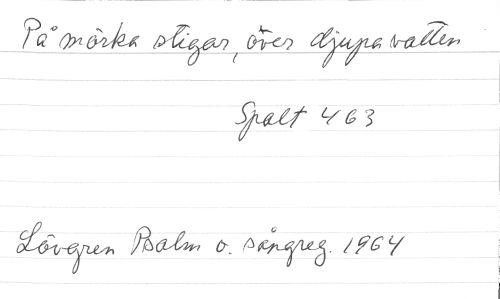 På mörka stigar, över djupa vatten
Spalt 463
Lövgren Psalm o. sångreg. 1964